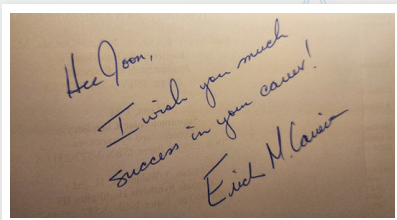 Hee Joon,
I wish you much
success in your career!
Erich M.